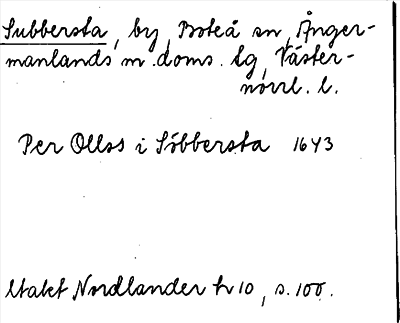 Subbersta, by, Boteå sn, Ånger-
manlands m. doms. tg, Väster-
norrl. l.
Per Olløs i Søbbersta 1643
Utakt Nordlander h 10, s. 100.